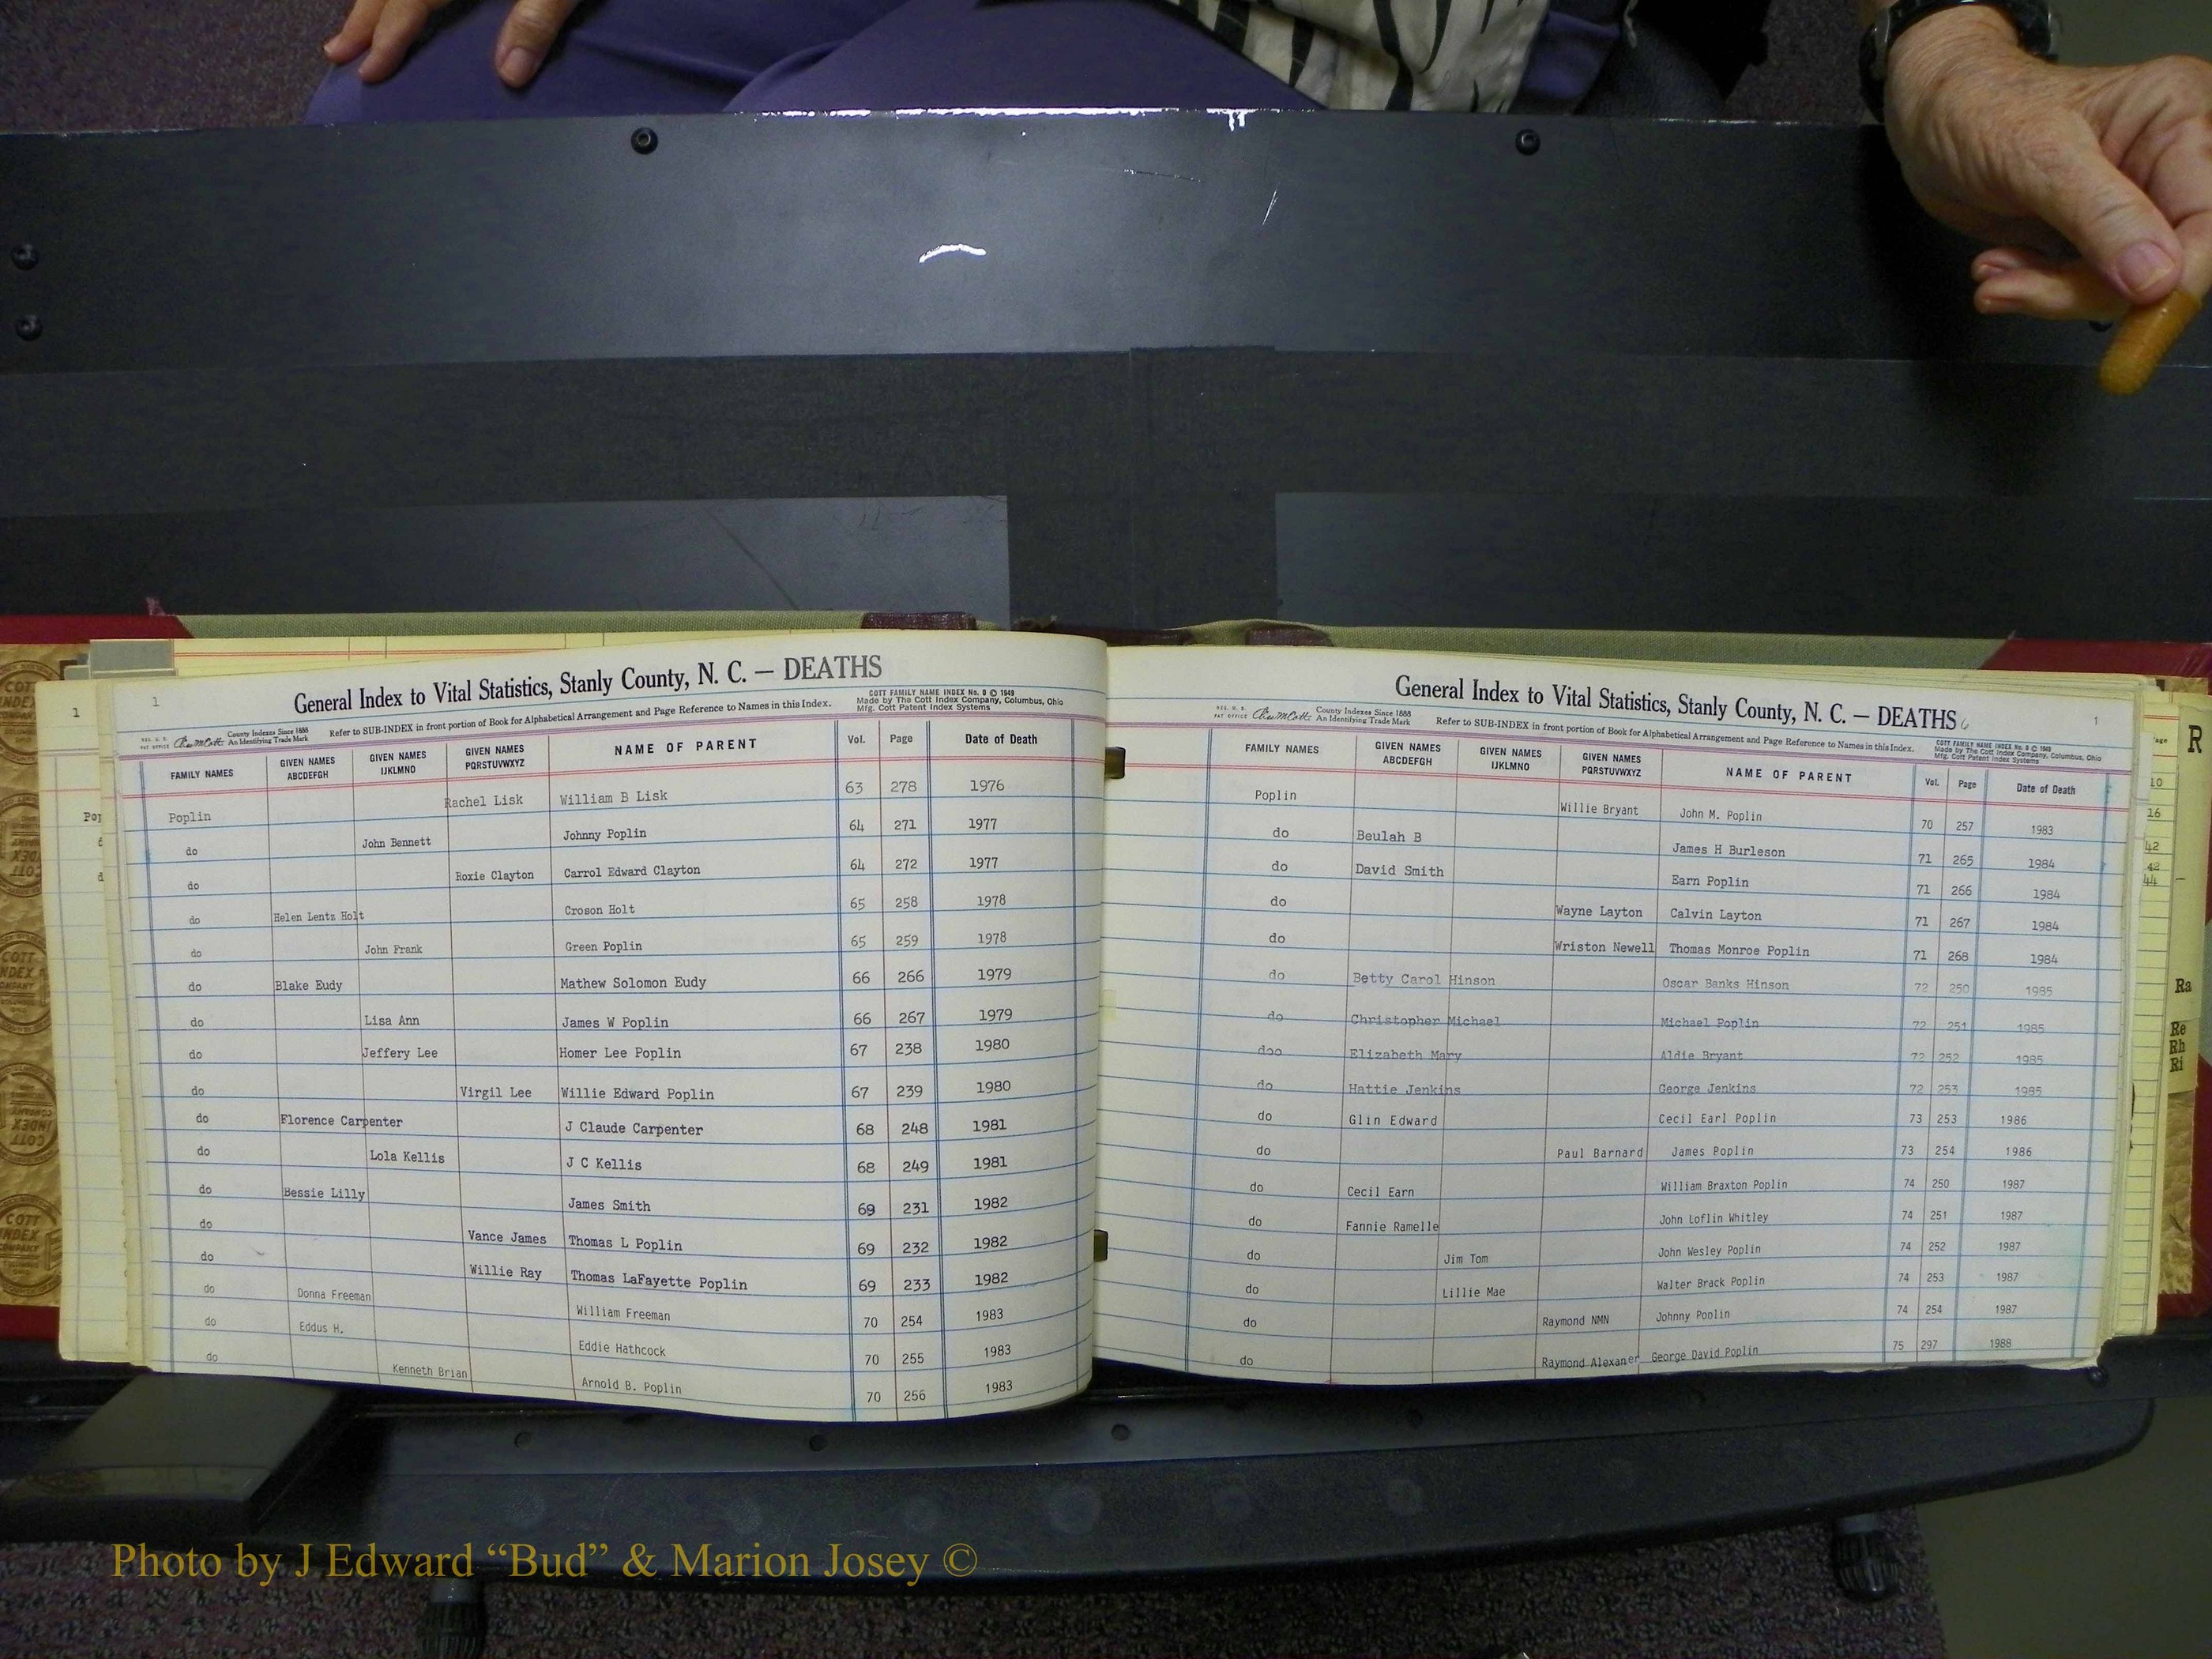 1
General Index to Vital Statistics, Stanly County, N. C. — DEATHS
REG. U. S. PAT OFFICE County Indexes Since 1888 An Identifying Trade Mark Refer to SUB-INDEX in front portion of Book for Alphabetical Arrangement and Page Reference to Names in this Index.
COTT FAMILY NAME INDEX No. 0 © 1949
Made by The Cott Index Company, Columbus, Ohio
Mfg. Cott Patent Index Systems
FAMILY NAMES GIVEN NAMES ABCDEFGH GIVEN NAMES IJKLMNO GIVEN NAMES PQRSTUVWXYZ NAME OF PARENT Vol. Page Date of Death
Poplin Rachel Lisk William B Lisk 63 278 1976
do John Bennett Johnny Poplin 64 271 1977
do Roxie Clayton Carrol Edward Clayton 64 272 1977
do Helen Lentz Holt Croson Holt 65 258 1978
do John Frank Green Poplin 65 259 1978
do Blake Eudy Mathew Solomon Eudy 66 266 1979
do Lisa Ann James W Poplin 66 267 1979
do Jeffery Lee Homer Lee Poplin 67 238 1980
do Virgil Lee Willie Edward Poplin 67 239 1980
do Florence Carpenter J Claude Carpenter 68 248 1981
do Lola Kellis J C Kellis 68 249 1981
do Bessie Lilly James Smith 69 231 1982
do Vance James Thomas L Poplin 69 232 1982
do Willie Ray Thomas LaFayette Poplin 69 233 1982
do Donna Freeman William Freeman 70 254 1983
do Eddus H. Eddie Hathcock 70 255 1983
do Kenneth Brian Arnold B. Poplin 70 256 1983
General Index to Vital Statistics, Stanly County, N. C. — DEATHS
1
REG. U. S. PAT OFFICE County Indexes Since 1888 An Identifying Trade Mark Refer to SUB-INDEX in front portion of Book for Alphabetical Arrangement and Page Reference to Names in this Index.
COTT FAMILY NAME INDEX No. 0 © 1949
Made by The Cott Index Company, Columbus, Ohio
Mfg. Cott Patent Index Systems
FAMILY NAMES GIVEN NAMES ABCDEFGH GIVEN NAMES IJKLMNO GIVEN NAMES PQRSTUVWXYZ NAME OF PARENT Vol. Page Date of Death
Poplin Willie Bryant John M. Poplin 70 257 1983
do Beulah B James H Burleson 71 265 1984
do David Smith Earn Poplin 71 266 1984
do Wayne Layton Calvin Layton 71 267 1984
do Wriston Newell Thomas Monroe Poplin 71 268 1984
do Betty Carol Hinson Oscar Banks Hinson 72 250 1985
do Christopher Michael Michael Poplin 72 251 1985
doo Elizabeth Mary Aldie Bryant 72 252 1985
do Hattie Jenkins George Jenkins 72 253 1985
do Glin Edward Cecil Earl Poplin 73 253 1986
do Paul Barnard James Poplin 73 254 1986
do Cecil Earn William Braxton Poplin 74 250 1987
do Fannie Ramelle John Loflin Whitley 74 251 1987
do Jim Tom John Wesley Poplin 74 252 1987
do Lillie Mae Walter Brack Poplin 74 253 1987
do Raymond NMN Johnny Poplin 74 254 1987
do Raymond Alexaner George David Poplin 75 297 1988
1
R
Ra
Re
Rh
Ri
Photo by J Edward “Bud” & Marion Josey ©